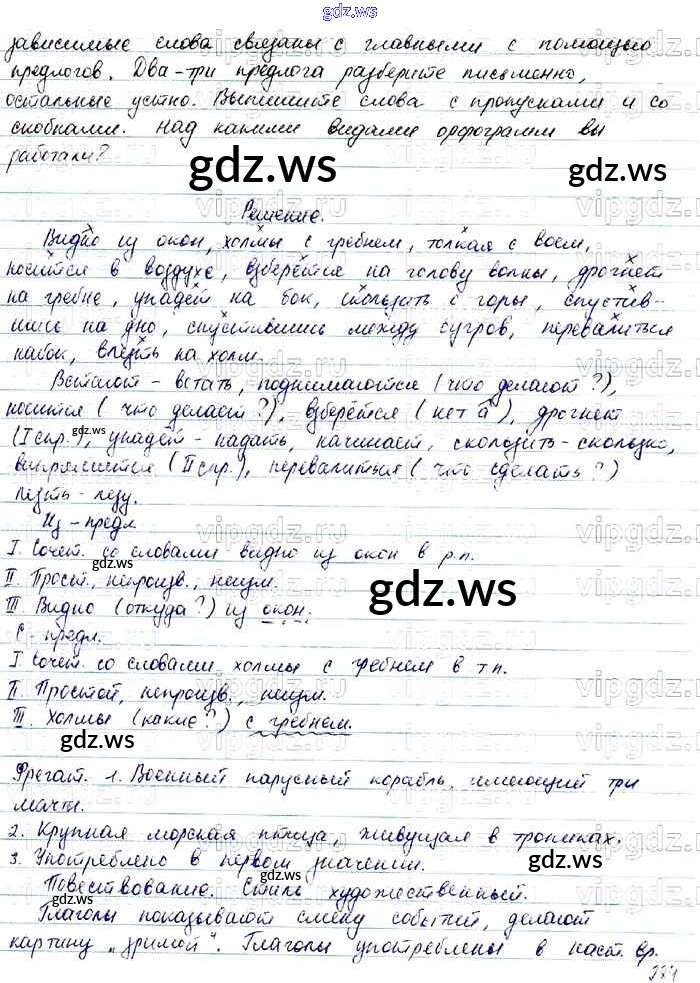 gdz.ws
зависимые слова связаны с главными с помощью
предлогов. Два-три предлога разберите письменно,
остальные устно. Выпишите слова с пропусками и со
скобками. Над какими видами орфограмм вы
работали?
gdz.ws
gdz.ws
Решение.
Видно из окон, холмы с гребнем, толкая с воем,
носится в воздухе, взберётся на голову волны, дрогнет
на гребне, упадёт на бок, скользить с горы, спустив-
шись на дно, спустившись между бугров, перевалиться
набок, влезть на холм.
Встают - встать, поднимаются (что делают?),
носится (что делает?), взберётся (нет а), дрогнет
(I спр.), упадёт - падать, начинает, скользить - скользко,
gdz.ws
(II спр.), перевалиться (что сделать?)
лезть - лезу.
Из - предл.
I. Сочет. со словами видно из окон в р.п.
II. Прост., непроизв., неизм.
III. Видно (откуда?) из окон.
gdz.ws
С - предл.
I Сочет. со словами холмы с гребнем в т.п.
II. Простой, непроизв., неизм.
III. Холмы (какие?) с гребнем.
gdz.ws
gdz.ws
Фрегат. 1. Военный парусный корабль, имеющий три
мачты.
2. Крупная морская птица, живущая в тропиках.
3. Употреблено в первом значении.
gdz.ws
Повествование. Стиль художественный.
gdz.ws
Глаголы показывают смену событий, делают
картину „зримой". Глаголы употреблены в наст. вр.
gdz.ws